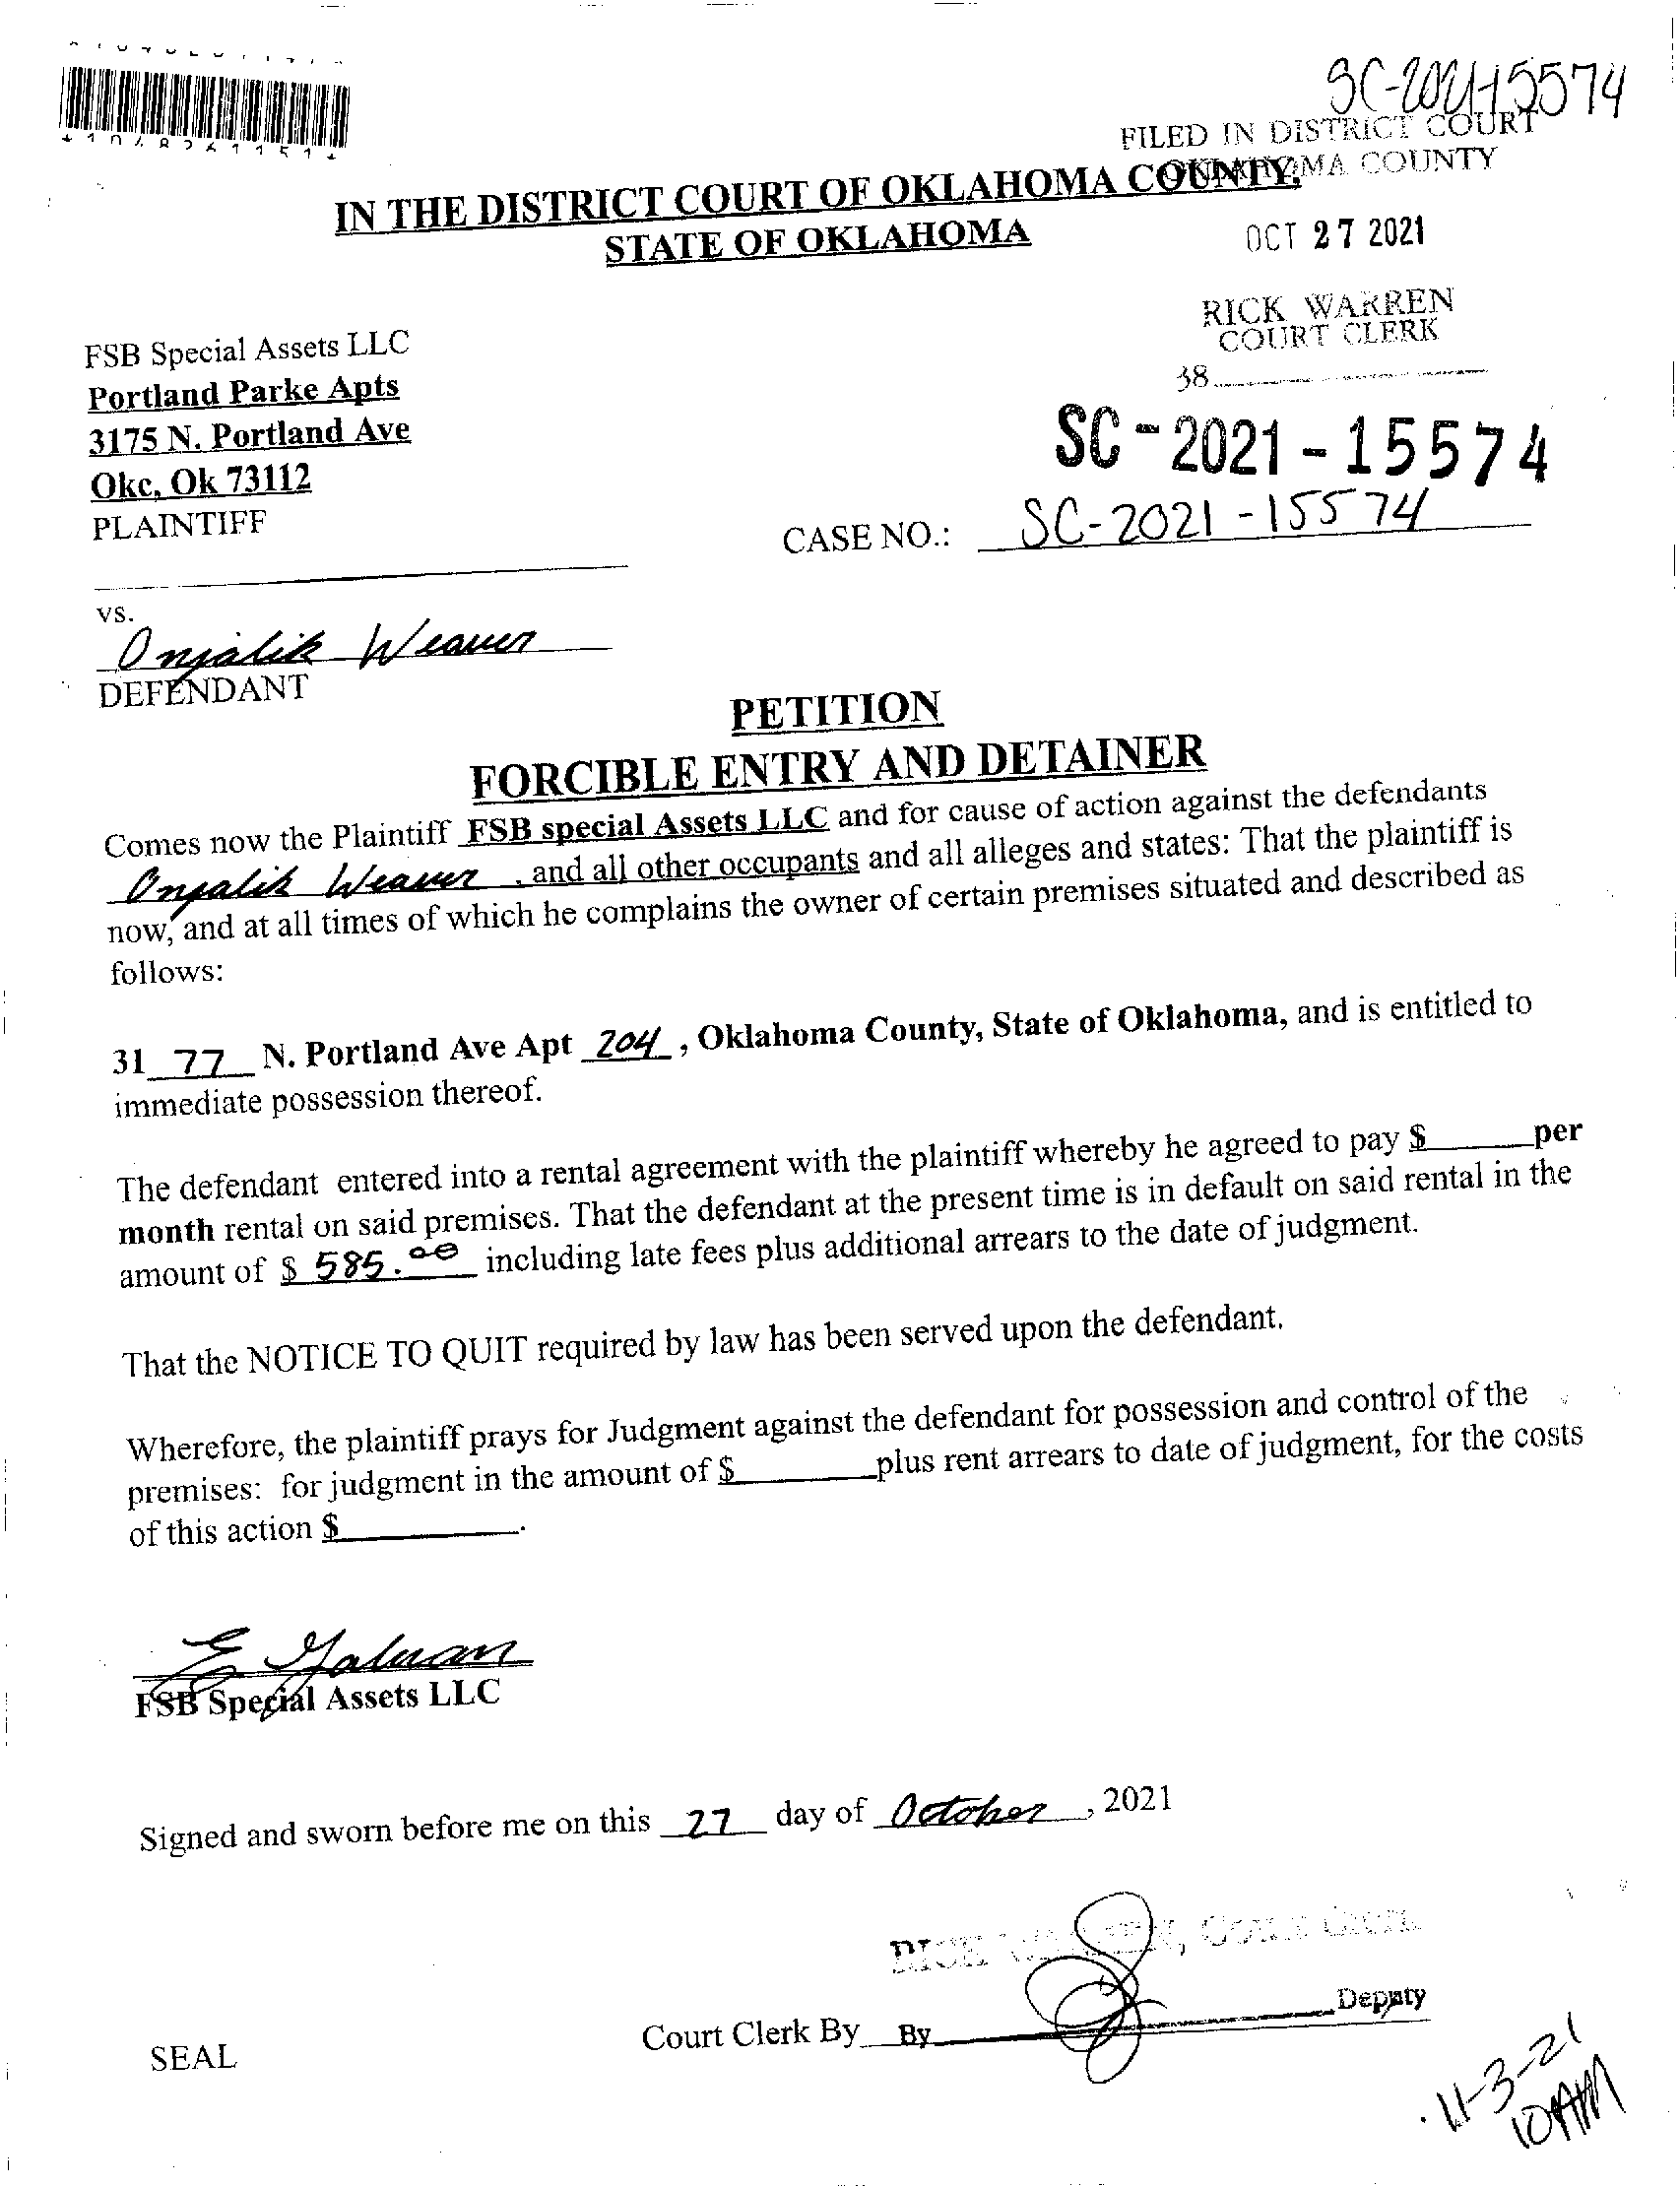 SC-2021-15574
FILED IN DISTRICT COURT
OKLAHOMA COUNTY
IN THE DISTRICT COURT OF OKLAHOMA COUNTY,
STATE OF OKLAHOMA
OCT 27 2021
RICK WARREN
COURT CLERK
38
FSB Special Assets LLC
Portland Parke Apts
3175 N. Portland Ave
Okc, Ok 73112
PLAINTIFF
SC-2021-15574
CASE NO.: SC-2021-15574
vs.
Onjalik Weaver
DEFENDANT
PETITION
FORCIBLE ENTRY AND DETAINER
Comes now the Plaintiff FSB special Assets LLC and for cause of action against the defendants
Onjalik Weaver, and all other occupants and all alleges and states: That the plaintiff is
now, and at all times of which he complains the owner of certain premises situated and described as
follows:
31 77 N. Portland Ave Apt 204, Oklahoma County, State of Oklahoma, and is entitled to
immediate possession thereof.
The defendant entered into a rental agreement with the plaintiff whereby he agreed to pay $______per
month rental on said premises. That the defendant at the present time is in default on said rental in the
amount of $ 585.00 including late fees plus additional arrears to the date of judgment.
That the NOTICE TO QUIT required by law has been served upon the defendant.
Wherefore, the plaintiff prays for Judgment against the defendant for possession and control of the
premises: for judgment in the amount of $________plus rent arrears to date of judgment, for the costs
of this action $__________.
E Galuan
FSB Special Assets LLC
Signed and sworn before me on this 27 day of October, 2021
RICK WARREN, Court Clerk
Court Clerk By By Deputy
SEAL
11-3-21
10AM